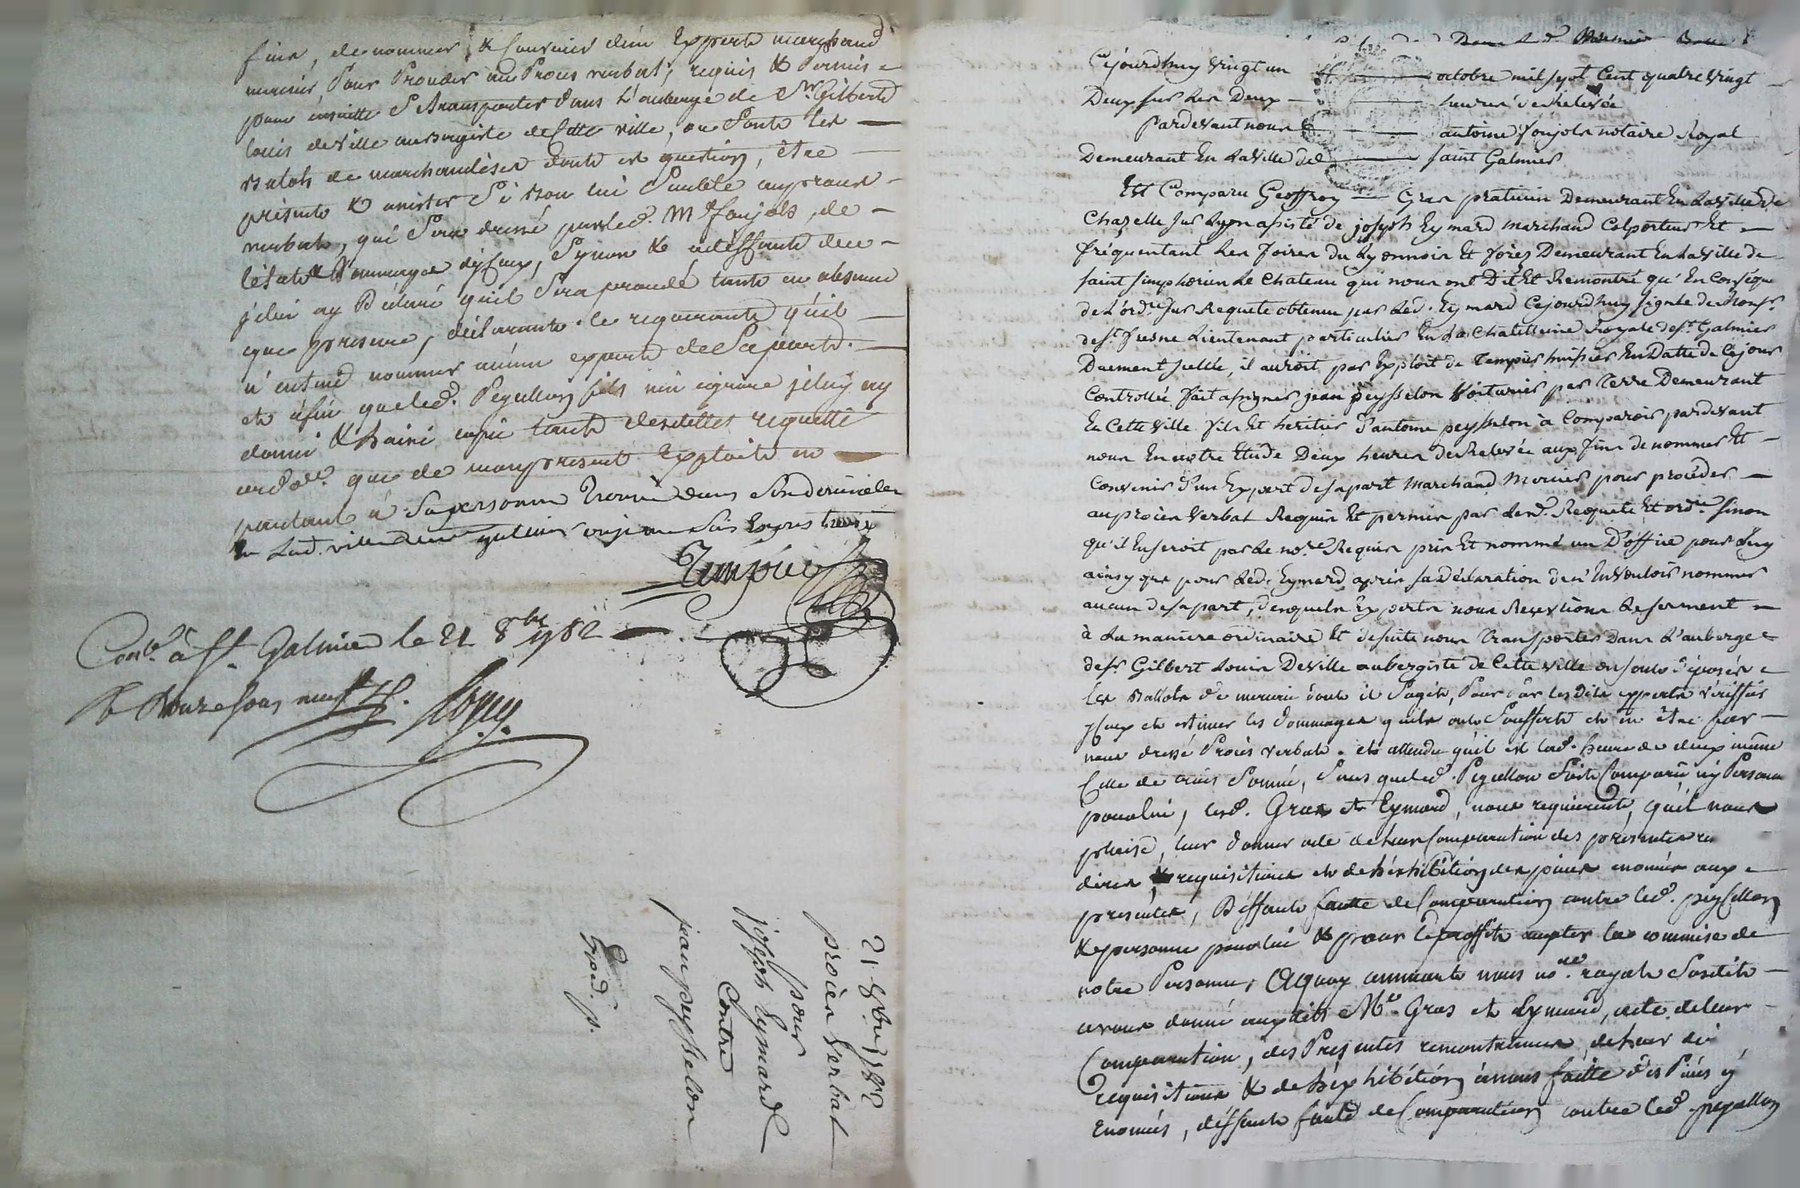 fins, de nommer & Convenir d'un Expert marchand
mercier Pour Proceder au Proces verbal, requis & Permis
pour ensuitte Se transporter dans L'auberge de Sr Gilbert
Louis deville aubergiste de Cette ville, ou Sont les
Balots de marchandises dont est question, être
présent & assister Si bon lui Semble au procès
verbal, qui Sera dressé par led. Me Joujols, de
l'état & Dommage d'yceux, Sinon & a deffaut de ce
j'elui ay Déclaré qu'il Sera procedé tant en absence
que presence, déclarant le requerant qu'il
n'entend nommer aucun expert de Sa part.
et afin que led. Peysellon fils n'en ignore je luy ay
donné & baillé copie tant desdittes requette
ord.ce que de mon present Exploit en
parlant à Sa personne trouvé dans Son domicile
en Lad. ville
Tempier
Conlé à St. Galmier le 21 8bre 1782
R. Douze sous
21 8bre 1782
procès Verbal
pour
joseph Eymard
Contre
jean peysselon
Exped. p.
Cejourdhuy vingt un octobre mil sept Cent quatre vingt
Deux sur les Deux heures de Relevée
Pardevant nous antoine Joujols notaire Royal
Demeurant En La Ville de saint Galmier
Est Comparu Geoffroy Gras praticien Demeurant En La Ville de
Chazelle sur Lyon assisté de joseph Eymard Marchand Colporteur Et
fréquentant Les foires du Lyonnois Et forès Demeurant En La Ville de
saint simphorien Le Chateau qui nous ont Dit Et Remontré qu'En Conséque
de L'ordce sur Requete obtenue par Led. Eymard Cejourdhuy signée de Monsr
de st. fresne Lieutenant particulier En La Chatellenie Royale de st. Galmier
Duement scellée, il auroit par Exploit de Tempier huissier En Datte de Cejour
Controllée fait assigner jean peysselon Voiturier par Terre Demeurant
En Cette Ville fils Et héritier d'antoine peysselon à Comparoir pardevant
nous En notre Etude Deux heures de Relevée aux fins de nommer Et
Convenir d'un Expert de sa part Marchand Mercier pour procéder
au procès Verbal Requis Et permis par Lesd. Requete Et ordce sinon
qu'il En seroit par Le nore Requis pris Et nommé un D'office pour Luy
ainsy que pour Led. Eymard après sa Déclaration de n'En Vouloir nommer
aucun de sa part, desquels Experts nous Recevrions Le serment
à La manière ordinaire Et de suite nous Transporter Dans L'auberge
de sr Gilbert Louis Deville aubergiste de Cette Ville ou sont déposés
Les Ballots de mercerie dont il S'agit, Pour par lesdits experts vériffier
yceux et estimer les dommages qu'ils ont Soufferts et en être par
nous dressé Procès verbal. et attendu qu'il est lad. heure de deux même
Celle de trois Sonnée, Sans que led. Peysellon Soit Comparu ny Personne
pour lui, lesd. Gras et Eymard, nous requierent, qu'il nous
plaise, leur donner acte de leur Comparution des presentes
dires & requisitions et de l'exhibition des pieces enoncées aux
presentes, Déffaut faute de Comparution contre led. peysellon
& personne pour lui & pour le proffit
notre Personne, A Quoy nous nore royal Susdit
avons donné auxdits Mes Gras et Eymard, acte de leur
Comparution, des Presentes remontrances, de leur
requisitions & de l'exhibition à nous faitte des Pieces y
Enoncées, déffaut faute de Comparution contre led. peysellon